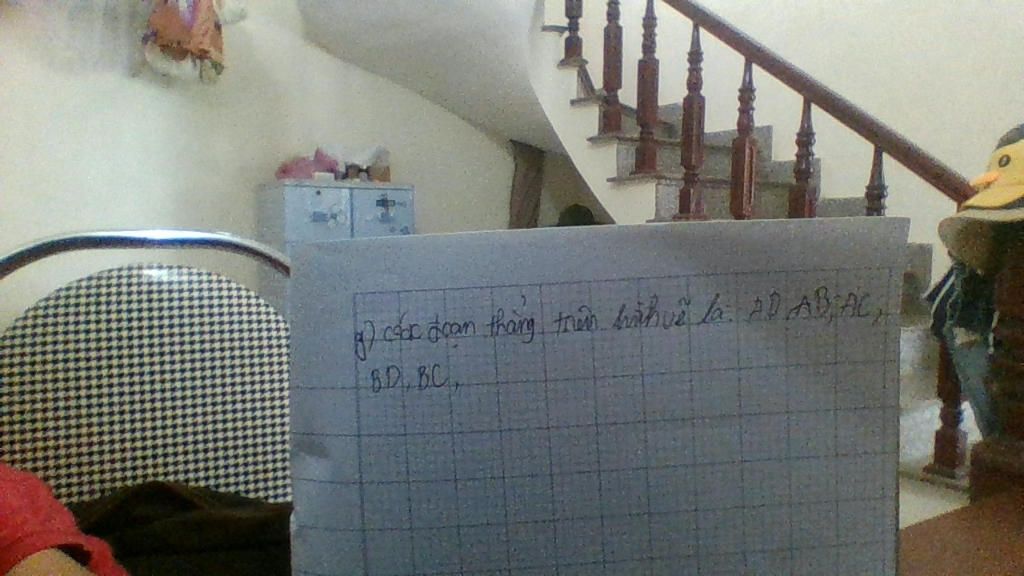 g) các đoạn thẳng trên hình vẽ là: AD, AB, AC,
BD, BC,